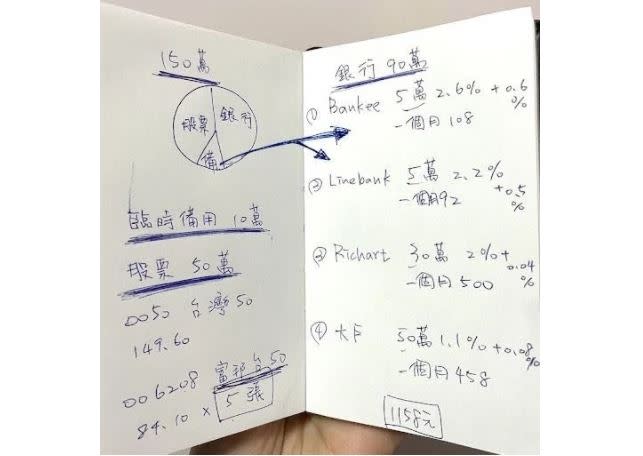 150萬
股票
銀行
備
臨時備用 10萬
股票 50萬
0050 台灣50
149.60
006208 富邦台50
84.10 × 5張
銀行 90萬
① Bankee 5萬 2.6% + 0.6%
一個月108
② Linebank 5萬 2.2% +0.5%
一個月92
③ Richart 30萬 2% + 0.04%
一個月500
④ 大戶 50萬 1.1% +0.08%
一個月458
1158元